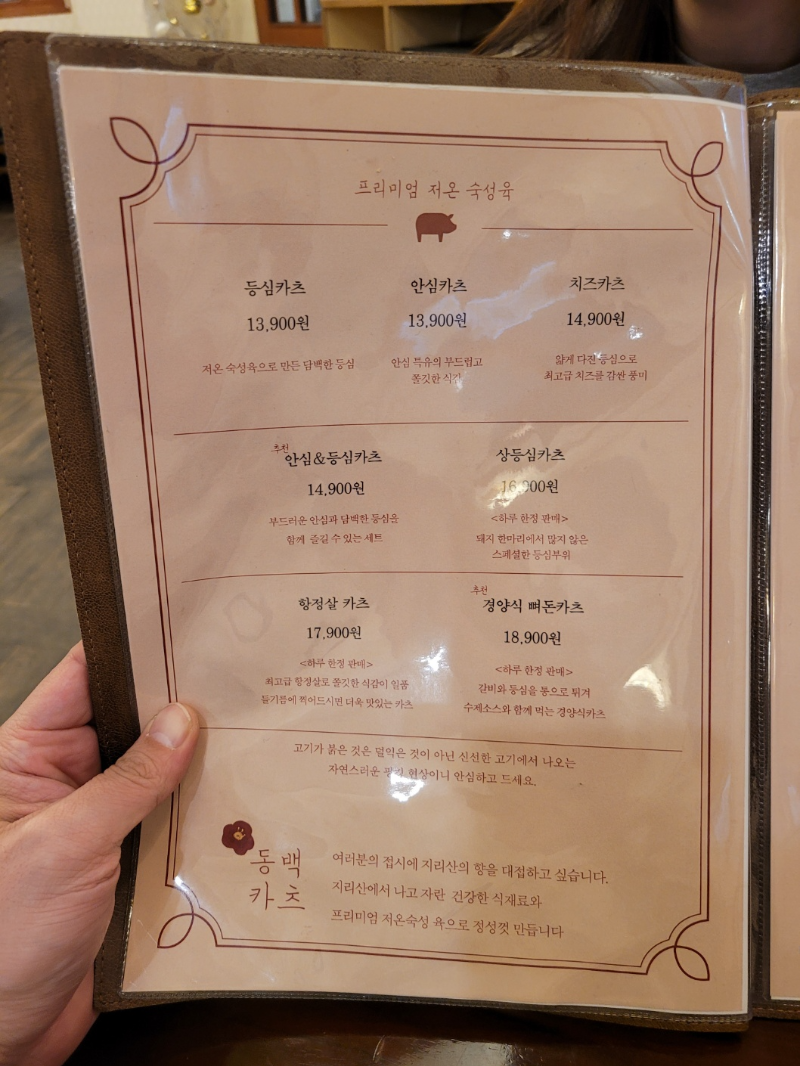 프리미엄 저온 숙성육
등심카츠
13,900원
저온 숙성육으로 만든 담백한 등심
안심카츠
13,900원
안심 특유의 부드럽고
쫄깃한 식감
치즈카츠
14,900원
얇게 다진 등심으로
최고급 치즈를 감싼 풍미
추천
안심&등심카츠
14,900원
부드러운 안심과 담백한 등심을
함께 즐길 수 있는 세트
상등심카츠
16,900원
<하루 한정 판매>
돼지 한마리에서 많지 않은
스페셜한 등심부위
항정살 카츠
17,900원
<하루 한정 판매>
최고급 항정살로 쫄깃한 식감이 일품
들기름에 찍어드시면 더욱 맛있는 카츠
추천
경양식 뼈돈카츠
18,900원
<하루 한정 판매>
갈비와 등심을 통으로 튀겨
수제소스와 함께 먹는 경양식카츠
고기가 붉은 것은 덜익은 것이 아닌 신선한 고기에서 나오는
자연스러운 현상이니 안심하고 드세요.
동백
카츠
여러분의 접시에 지리산의 향을 대접하고 싶습니다.
지리산에서 나고 자란 건강한 식재료와
프리미엄 저온숙성 육으로 정성껏 만듭니다